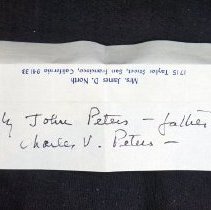 Mrs. James D. North
1715 Taylor Street, San Francisco, California 94133
by John Peters – father
Charles V. Peters –